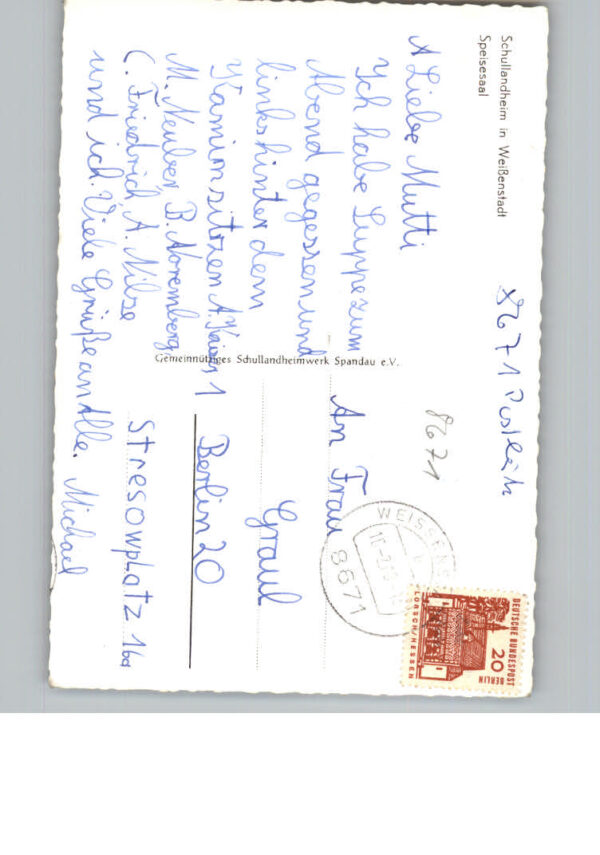 Schullandheim in Weißenstadt
Speisesaal
Liebe Mutti
Ich habe Suppe zum
Abend gegessen und
links hinter dem
Kamin sitzen A. Kaiser 1
M. Neuber, B. Noremberg
C. Friedrich A. Nilse
und ich. Viele Grüße an Alle. Michael
Gemeinnütziges Schullandheimwerk Spandau e.V.
8671
8671
An Frau
Graul
Berlin 20
Stresowplatz 16a
8671
DEUTSCHE BUNDESPOST
BERLIN
20
LORSCH/HESSEN